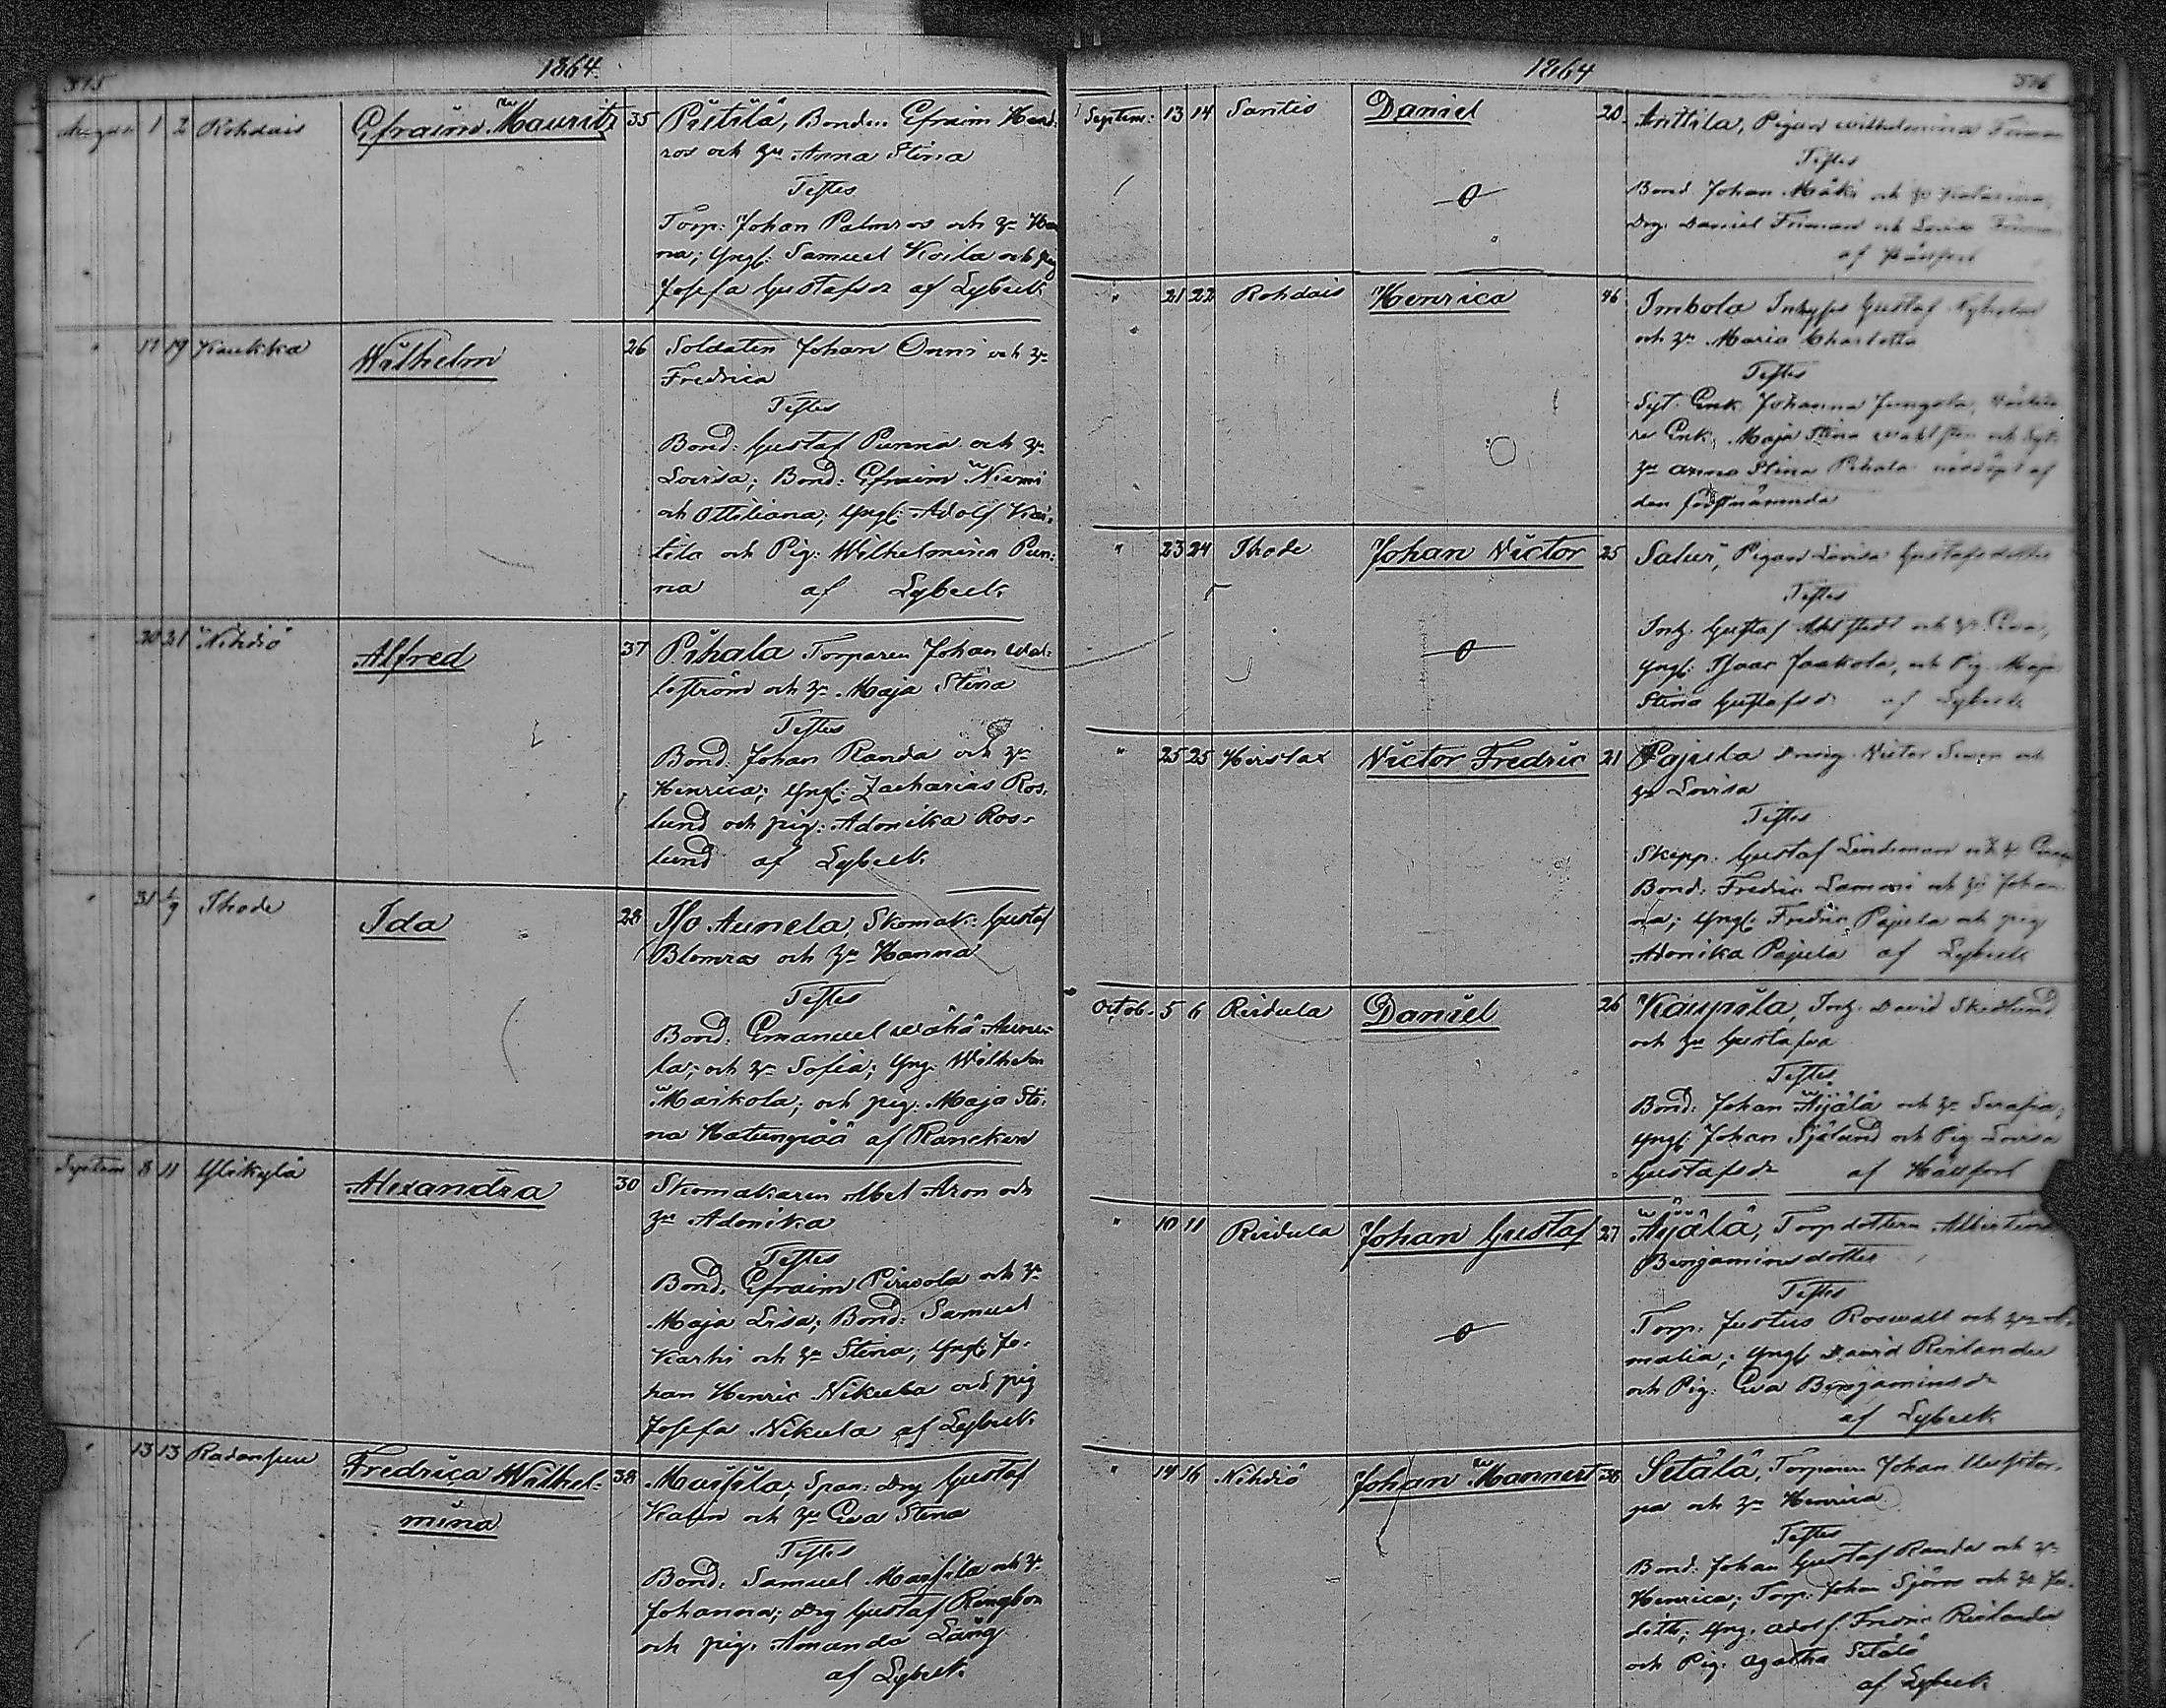 1864
Augusti 1 2 Rohdais Efraim Mauritz 35 Pietilä, Bonden Efraim Hend-
ros och hu Anna Stina
Testes
Torp: Johan Palmros och hu Han
na; Yngl: Samuel Koila och pig
Josefa Gustafsdr af Lybeck
" 17 19 Kaukka Wilhelm 26 Soldaten Johan Onni och hu
Fredrica
Testes
Bond: Gustaf Punna och hu
Lovisa; Bond: Efraim Niemi
och Ottiliana; Yngl: Adolf Kai-
tila och Pig: Wilhelmina Pun-
na af Lybeck
" 20 21 Nihdiö Alfred 37 Pihala Torparen Johan Wal-
loström och hu Maja Stina
Testes
Bond: Johan Randa och hu
Henrica; Yngl: Zacharias Ros-
lund och pig: Adonika Ros-
lund af Lybeck
" 31 1/9 Thode Ida 28 Iso Aunela, Skomak: Gustaf
Blomros och hu Hanna
Testes
Bond: Emanuel Wähä Aune-
la; och hu Sofia; Yng: Wilhelm
Maikola; och pig: Maja Sti-
na Hatunpää af Rancken
Septem 8 11 Ylikylä Alexandra 30 Skomakaren Abel Aron och
hu Adonika
Testes
Bond: Efraim Pirvola och hu
Maja Lisa; Bond: Samuel
Karhi och hu Stina; Yngl: Jo-
han Henric Nikula och pig
Josefa Nikula af Lybeck
" 13 13 Radansuu Fredrica Wilhel- 38 Maisila; Span: Drg Gustaf
mina Kahn och hu Eva Stina
Testes
Bond: Samuel Maisila och hu
Johanna; Drg Gustaf Ringbom
och pig: Amanda Lång
af Lybeck
1864
Septem: 13 14 Santis Daniel 20 Anttila, Pigan Wilhelmina Friman
Testes
Bond Johan Mäki och hu Katarina,
Drg: Daniel Friman och Lovisa Friman
af Hällfors
" 21 22 Rohdais Henrica 46 Imbola Inhyses Gustaf Nyholm
och hu Maria Charlotta
Testes
Syt: Enk. Johanna Jungola,
Enk; Maja Stina och Syt:
hu Anna Stina Pihala nöddöpt af
den förstnämnda
" 23 24 Thode Johan Victor 25 Saluri, Pigan Lovisa Gustafsdotter
Testes
Inh: Gustaf Ahlstedt och hu Eva,
Yngl: Isaac Jaakola, och Pig: Maja
Stina Gustafsd: af Lybeck
" 25 25 Hirslax Victor Fredric 21 Pajula Dreng Victor och
hu Lovisa
Testes
Skepp: Gustaf Lindeman och hu
Bond: Fredric Lammi och hu Johan-
na; Yngl: Fredric Pajula och pig
Adonika Pajula af Lybeck
Octob. 5 6 Reidula Daniel 26 Kaupila, Inh: David Skedlund
och hu Gustafva
Testes
Bond: Johan Äijälä och hu Serafia;
Yngl: Johan Sjölund och Pig: Lovisa
Gustafsdr af Hällfors
" 10 11 Reidula Johan Gustaf 27 Äijälä, Torpdottern Albertina
Benjaminsdotter
Testes
Torp: Justus Roswall och hu A-
malia; Yngl: David Reilander
och Pig: Eva Benjaminsdr
af Lybeck
" 14 16 Nihdiö Johan Mannert 36 Setälä, Torparen Johan
och hu Henrica
Testes
Bond: Johan Gustaf Randa och hu
Henrica; Torp: Johan Sjöros och hu Ju-
dith; Yng: Adolf Fredric Reilander
och Pig: Agatha Setälä
af Lybeck